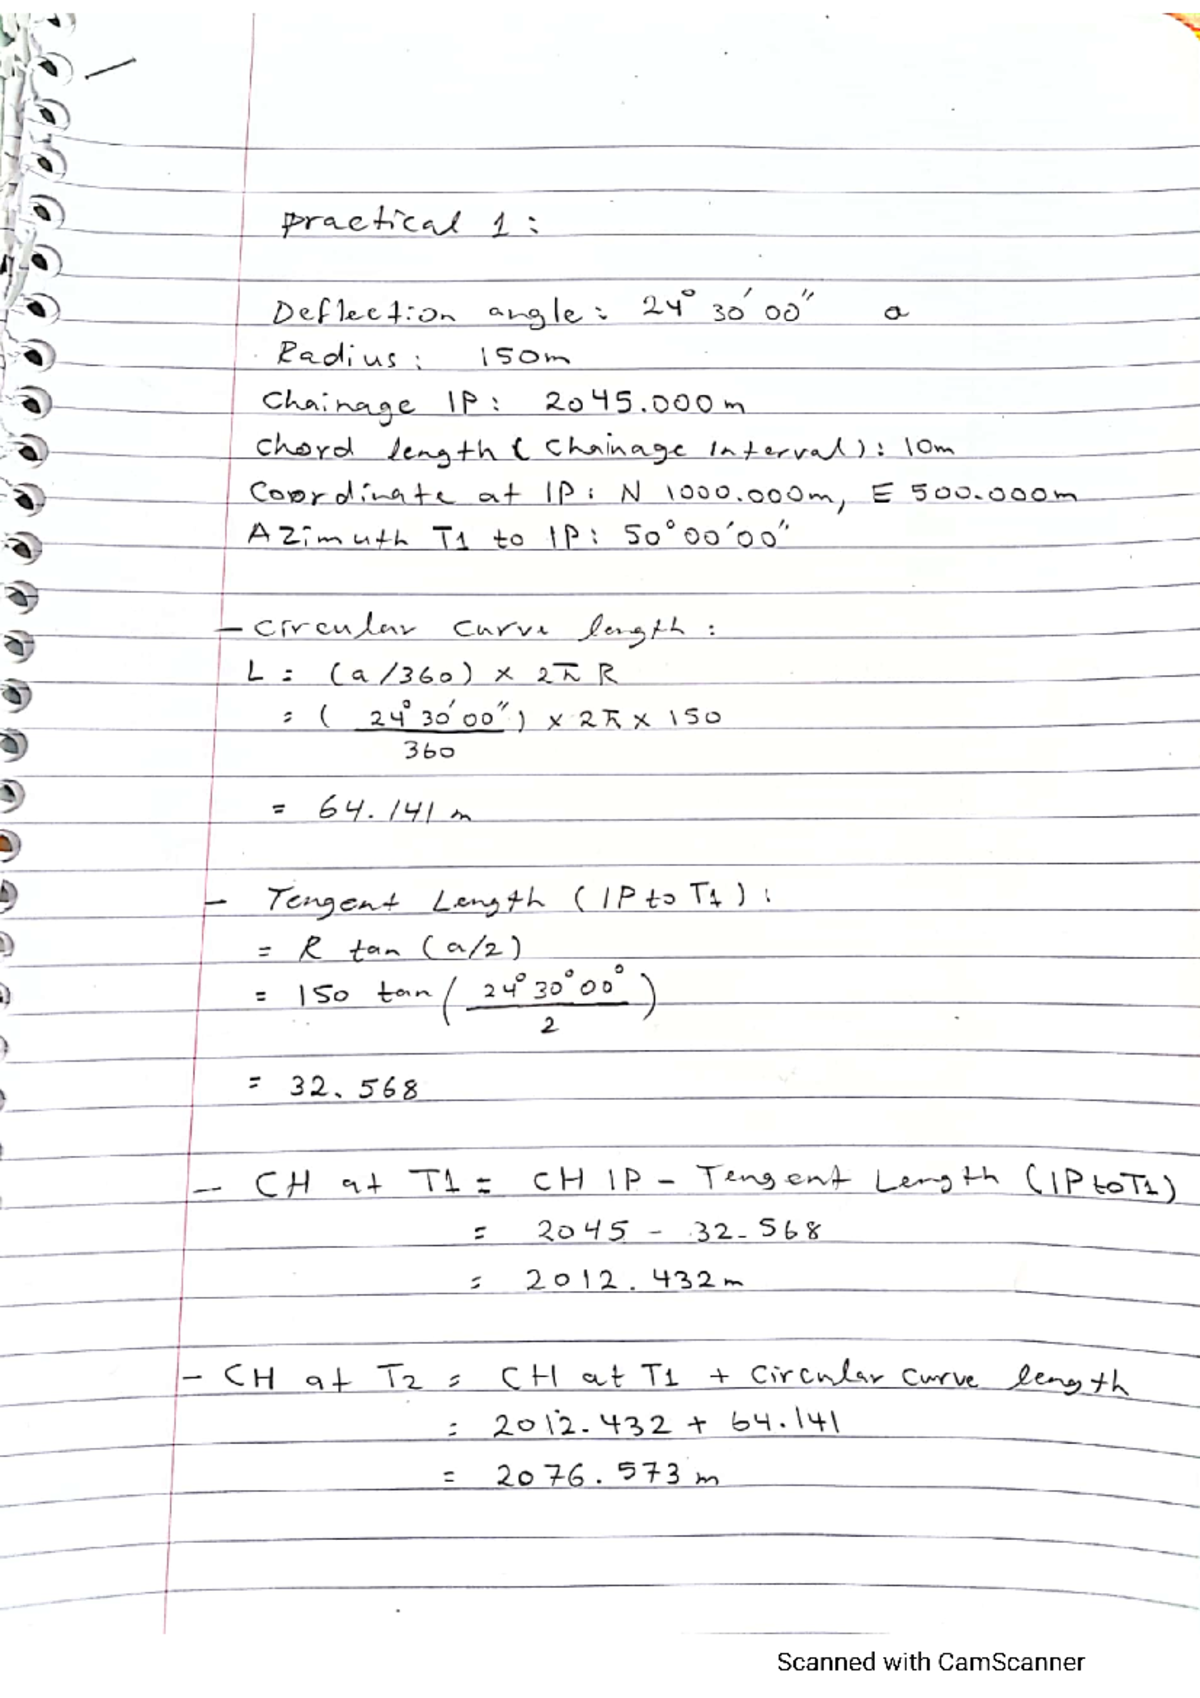 practical 1:
Deflection angle: 24° 30' 00" a
Radius: 150m
Chainage IP: 2045.000m
Chord length ( Chainage Interval): 10m
Coordinate at IP: N 1000.000m, E 500.000m
AZimuth T1 to IP: 50°00'00"
- Circular curve length:
L = (a/360) × 2π R
= ( 24° 30' 00" ) × 2π × 150
360
= 64.141 m
- Tengent Length (IP to T1):
= R tan (a/2)
= 150 tan ( 24° 30° 00° )
2
= 32.568
- CH at T1 = CH IP - Tengent Length (IP to T1)
= 2045 - 32.568
= 2012.432m
- CH at T2 = CH at T1 + Circular Curve length
= 2012.432 + 64.141
= 2076.573 m
Scanned with CamScanner